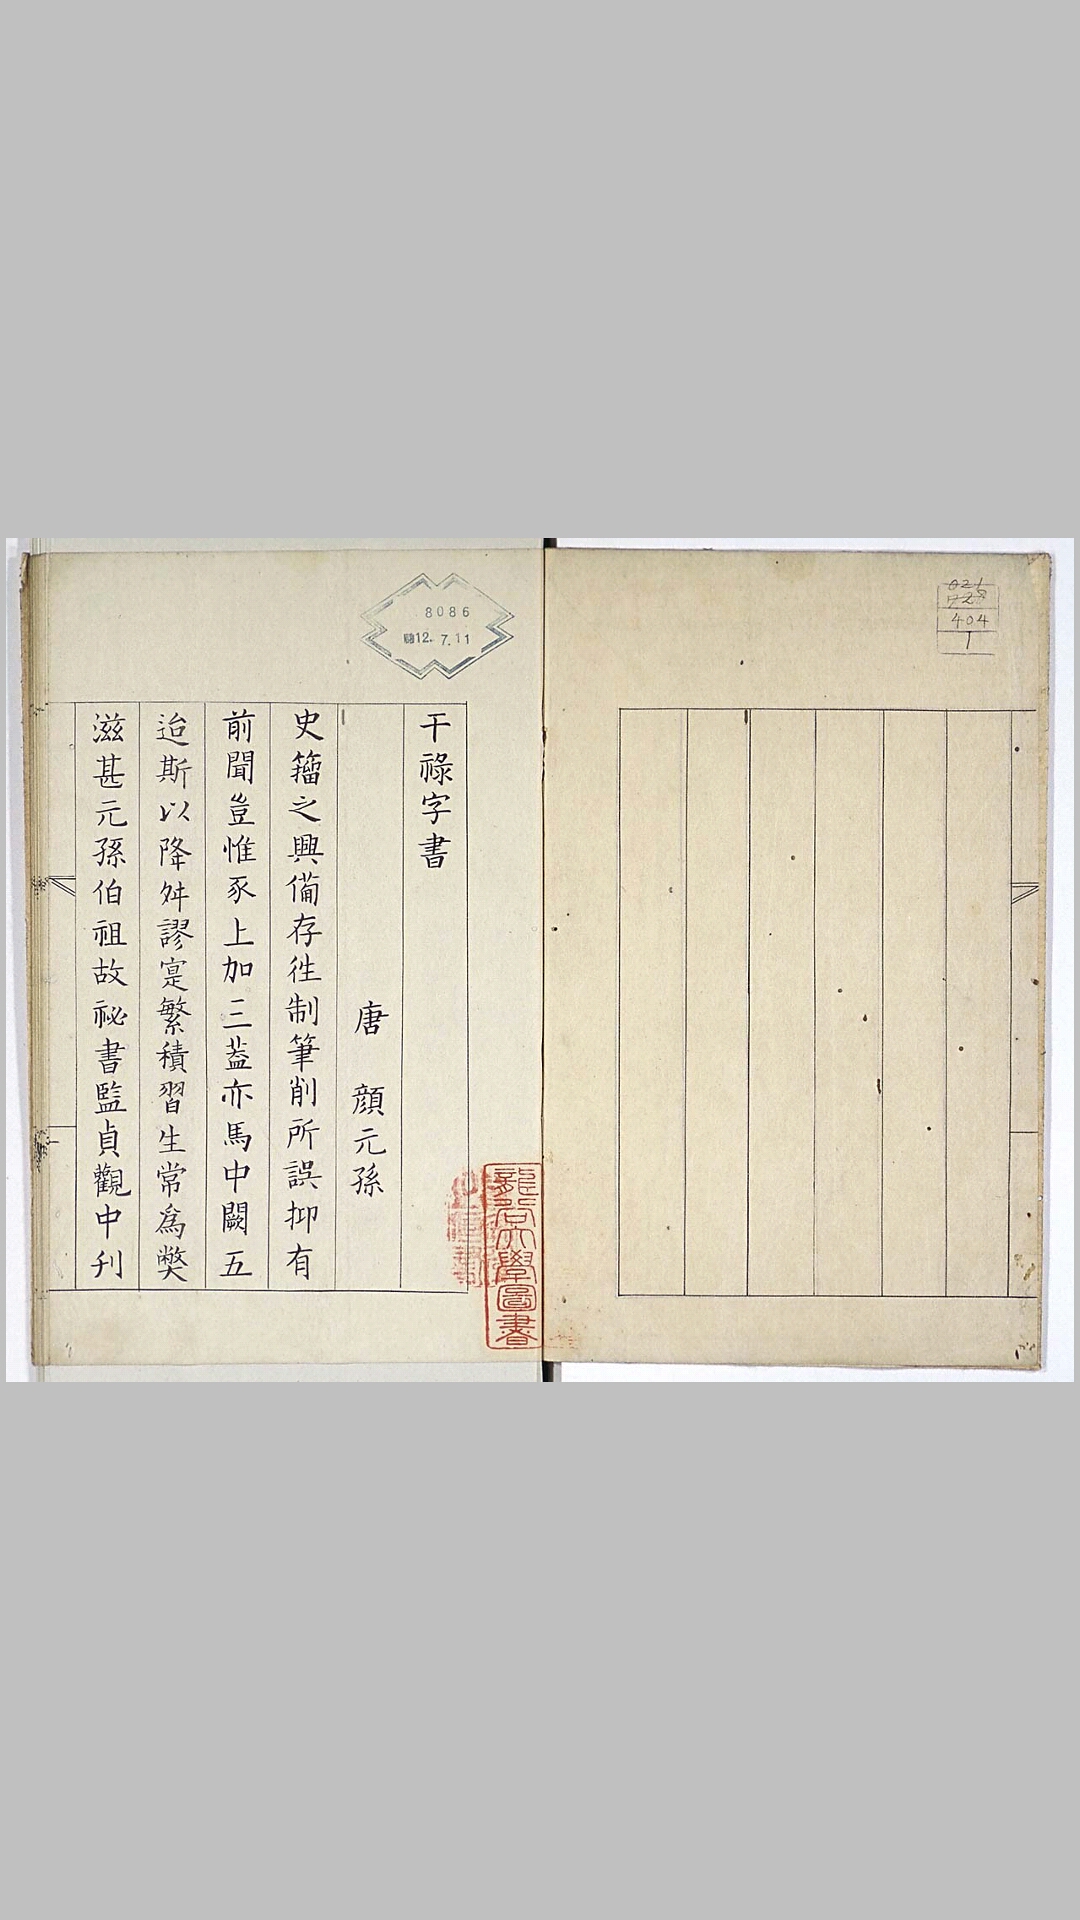 404
1
8086
12. 7.11
干祿字書
唐 顔元孫
史籒之興備存徃制筆削所誤抑有
前聞豈惟豕上加三葢亦馬中闕五
迨斯以降舛謬寔繁積習生常爲獘
滋甚元孫伯祖故祕書監貞觀中刋
龍谷大學圖書